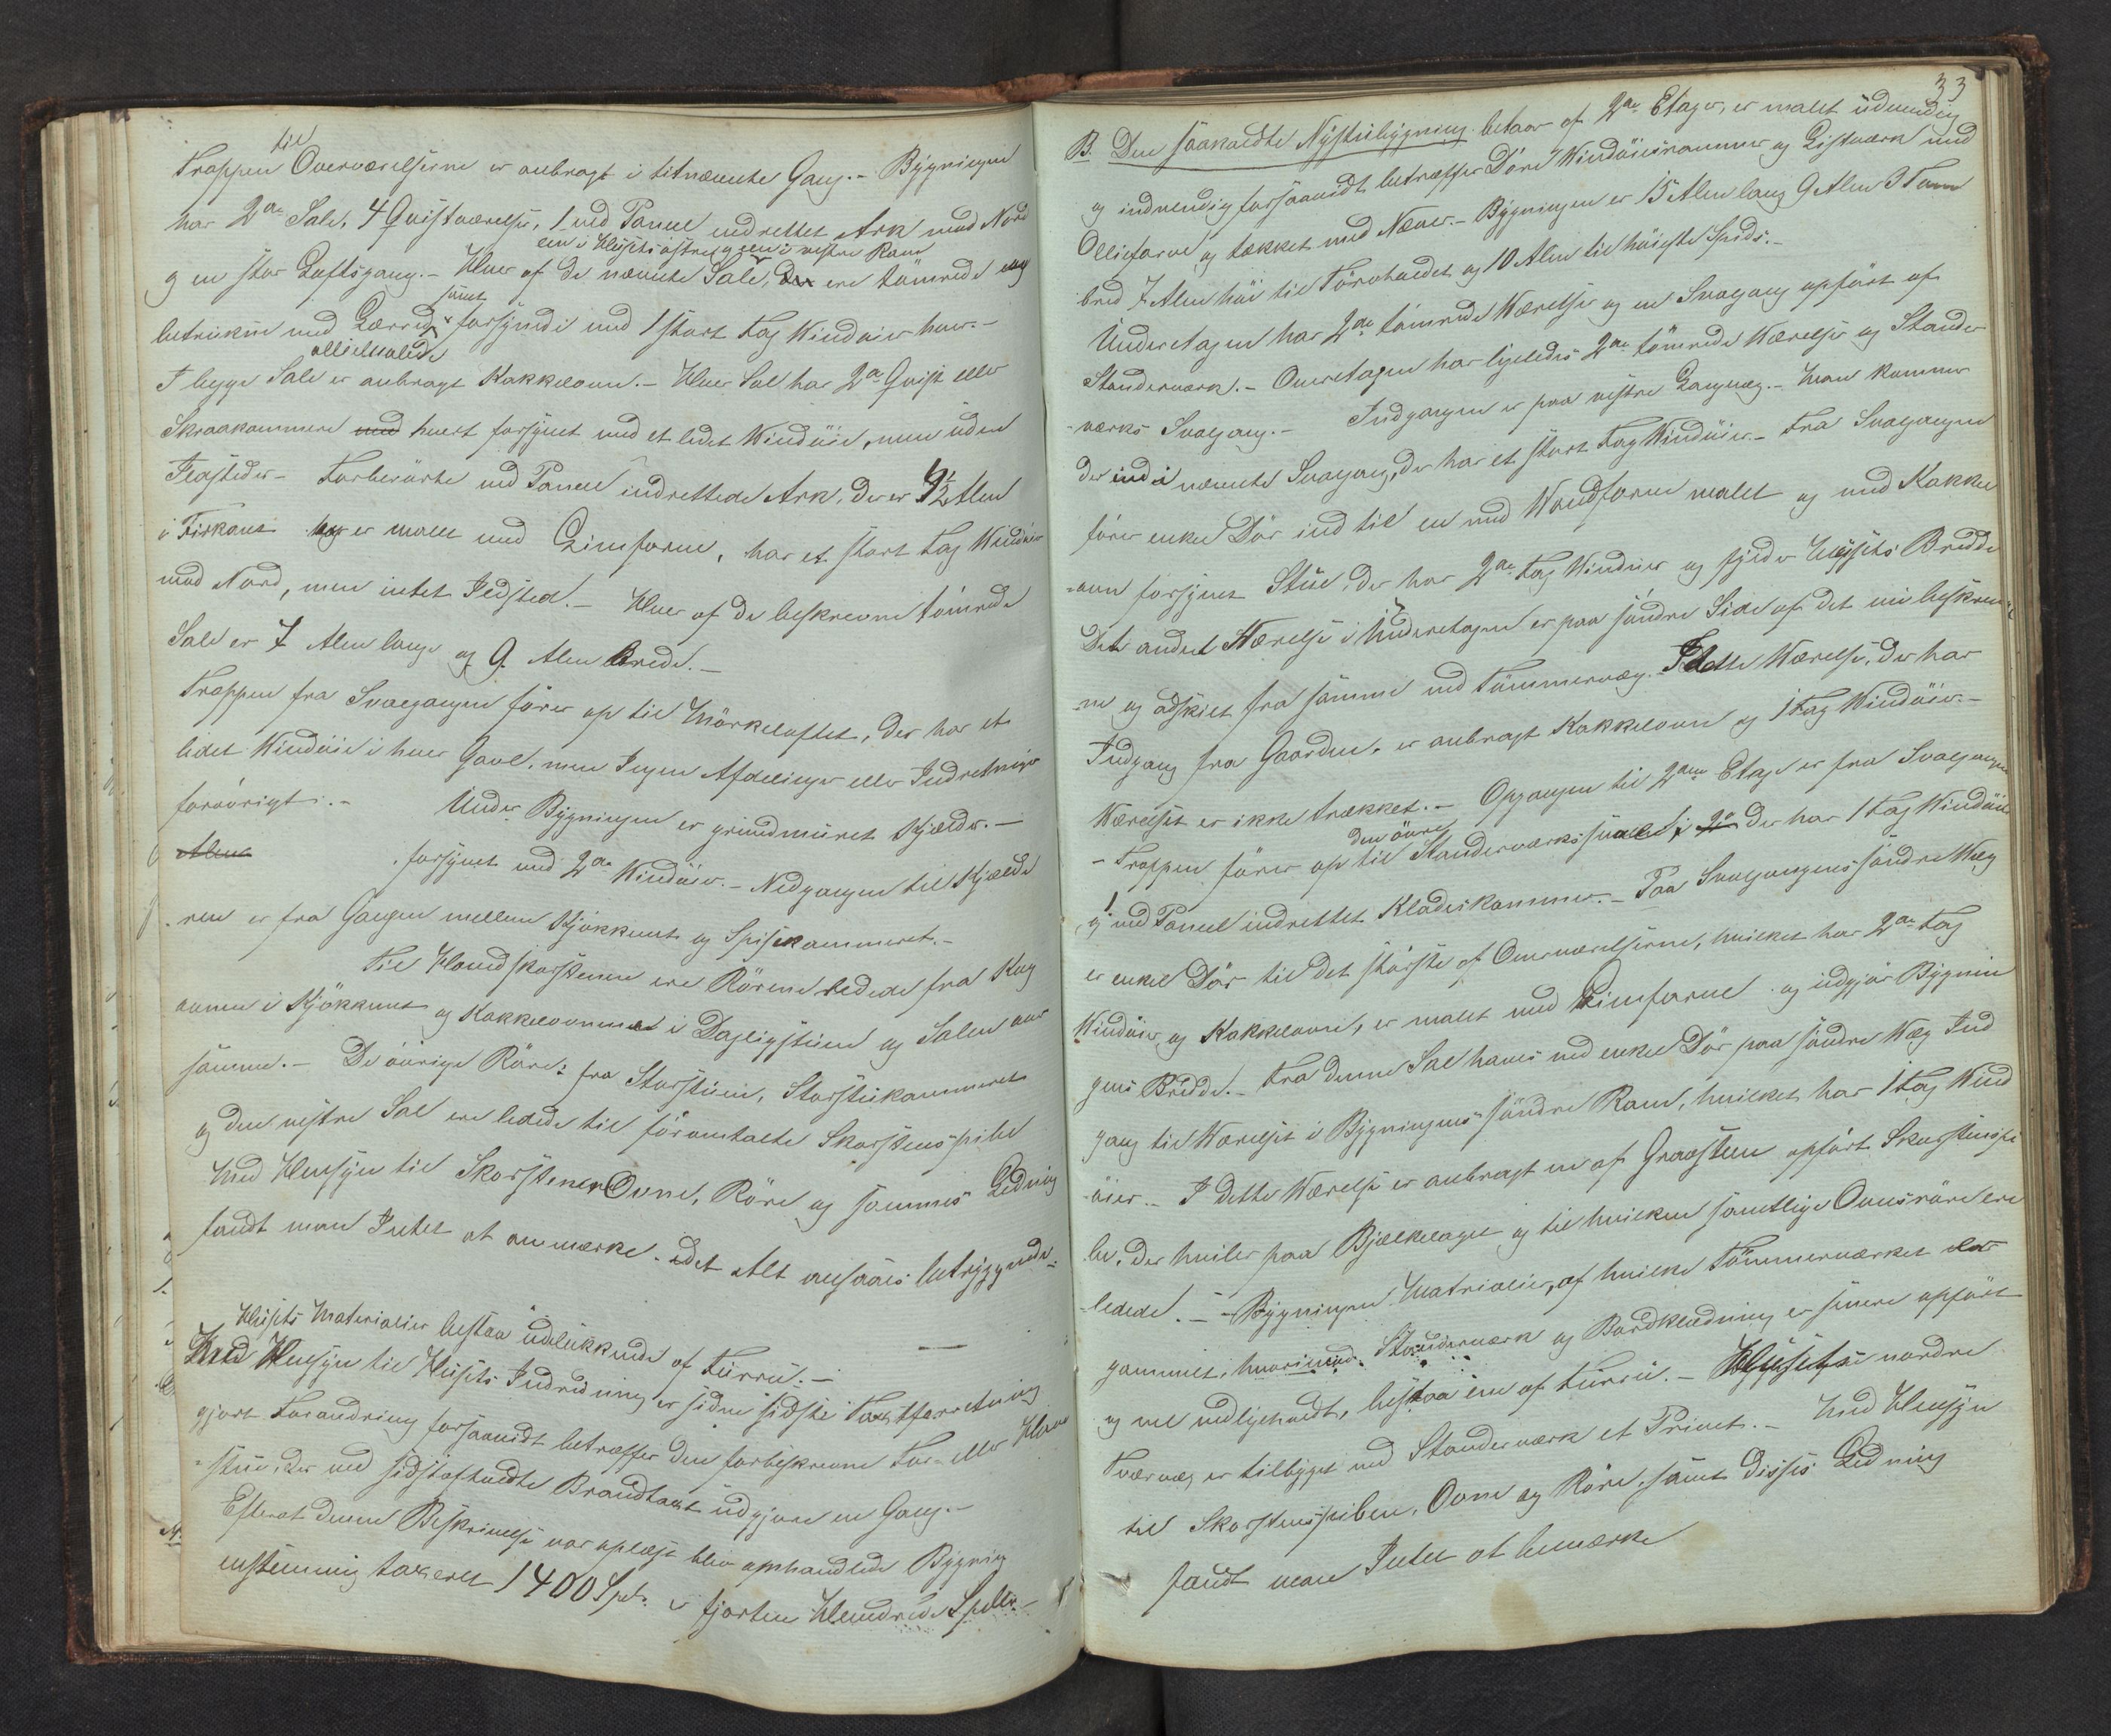 Trappen til Overværelserne er anbragt i titnævnte Gang. - Bygningen
har 2de Sale, 4 Qvistværelser, 1 ved Paneel indrettet Ark mod Nord
een i Husets østre og een i vestre Rum
og en stor Loftsgang. - Hver af de nævnte Sale, der ere tømrede og
betrukne med Lærred, samt forsynede med 1 stort Fag Vinduer hver. -
olliemalede
I begge Sale er anbragt Kakkelovn. - Hver Sal har 2de Qvist eller
Skraakammere med hvert forsynet med et lidet Vindue, men uden
Ildsteder - Forberørte ved Paneel indrettede Ark, der er 5½ Alen
i Firkant og er malet med Liimfarve, har et stort Fag Vinduer
mod Nord, men intet Ildsted. - Hver af de beskrevne tømrede
Sale er 7 Alen lange og 9 Alen brede. -
Trappen fra Svalgangen fører op til Mørkeloftet, der har et
lidet Vindue i hver Gavl, men Ingen Afdelinger eller Indretninger
forøvrigt. - Under Bygningen er grundmuret Kjælder. -
Alen forsynet med 2de Vinduer. - Nedgangen til Kjælde
ren er fra Gangen mellem Kjøkkenet og Spisekammeret. -
Til Hovedskorstenen ere Rørene ledede fra Kog
ovnen i Kjøkkenet og Kakkelovnene i Dagligstuen og Salen over
samme. - De øvrige Røre: fra Storstuen, Storstukammeret
og den vestre Sal ere ledede til føromtalte Skorstenspibe
Med Hensyn til Skorstenene, Ovne, Røre og sammes Ledning
fandt man Intet at anmærke - idet Alt ansaaes betryggende. -
Husets Materialier bestaa udelukkende af Furru. -
Med Hensyn til Husets Indredning er siden sidste Taxtforretning
gjort Forandring forsaavidt betræffer den forbeskrevne For- eller
stue, der ved sidstafholdte Brandtaxt udgjorde en Gang. -
Efterat denne Beskrivelse var oplæst blev omhandlede Bygning
enstemmig taxeret 1400 Spd. er fjorten Hundrede Spdlr. -
33
B. Den saakaldte Nystubygning bestaar af 2de Etager, er malet udvendig
og indvendig forsaavidt betræffer Døre Vindueskarmer og Listværk med
Olliefarve og tækket med Næver. - Bygningen er 15 Alen lang 9 Alen 3 Tom
bred 7 Alen høi til Tørvholdet og 10 Alen til høieste Spids. -
Underetagen har 2de tømrede Værelser og en Svalgang opført af
Standerværk. - Overetagen har ligeledes 2de tømrede Værelser og Stander
-værks Svalgang. - Indgangen er paa vestre Langvæg. - Man kommer
der ind i nævnte Svalgang, der har et stort Fag Vinduer - Fra Svalgangen
fører enkel Dør ind til en med Vandfarve malet og med Kakkel
-ovn forsynet Stue, der har 2de Fag Vinduer og Husets Bredde
Det andet Værelse i Underetagen er paa søndre Side af det nu beskrev-
ne og adskilt fra samme ved Tømmervæg. I dette Værelse, der har
Indgang fra Gaarden, er anbragt Kakkelovn og 1 Fag Vinduer. -
Værelset er ikke trækket. - Opgangen til 2den Etage er fra Svalgangen
den øvre
- Trappen fører op til Standerværkssvalen, der har 1 Fag Vinduer
og 1 ved Paneel indrettet Klædeskammer. - Paa Svalgangens søndre Væg
er enkel Dør til det største af Overværelserne, hvilket har 2de Fag
Vinduer og Kakkelovn, er malet med Liimfarve og udgjør Bygnin
gens Bredde. - Fra denne Sal haves ved enkel Dør paa søndre Væg Ind
gang til Værelset i Bygningens søndre Rum, hvilket har 1 Fag Vind
uer. - I dette Værelse er anbragt en af Graasteen opført Skorstenspi
be, der hviler paa Bjælkelaget og til hvilken samtlige Ovnsrøre ere
ledede. - Bygningens Matrialier, af hvilke Tømmerværket er
gammelt, hvorimod Standerværk og Bordklædning er senere opført
og vel vedligeholdt, bestaa ene af Furru. - Ved Husets nordre
Tværvæg er tilbygget ved Standerværk et Privet. - Med Hensyn
til Skorstenspiben, Ovne og Røre, samt disses Ledning
fandt man Intet at bemærke